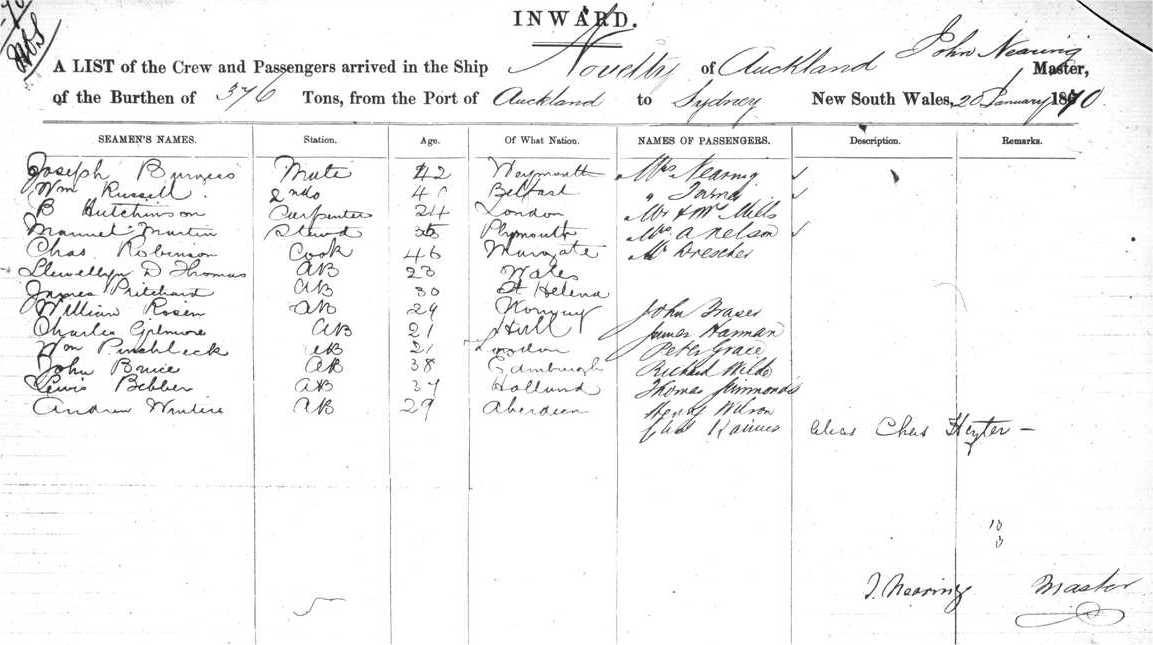 INWARD.
A LIST of the Crew and Passengers arrived in the Ship Novelty of Auckland John Nearing Master,
of the Burthen of 376 Tons, from the Port of Auckland to Sydney New South Wales, 20 January 1870
SEAMEN'S NAMES. Station. Age. Of What Nation. NAMES OF PASSENGERS. Description. Remarks.
Joseph Burgess Mate 42 Weymouth Mrs Nearing
Wm Russell 2nd do Belfast "
B Hutchinson Carpenter 24 London Mr & Mrs Mills
Manuel Martin Stewd Plymouth Mrs A Nelson
Chas Robinson Cook 46 Margate Mr Drescher
Llewellyn D Thomas AB 23 Wales
James Pritchard AB 30 St Helena
William Rosen AB 29 Norway John Fraser
Charles Gilmore AB 21 Hull James Harman
Wm Pinchbeck AB 21 London Peter Grace
John Bruce AB 38 Edinburgh Richard Wilds
Lewis Bebber AB 37 Holland Thomas Simmonds
Andrew AB 29 Aberdeen Henry Wilson
Chas Raines alias Chas Heyter –
J. Nearing Master